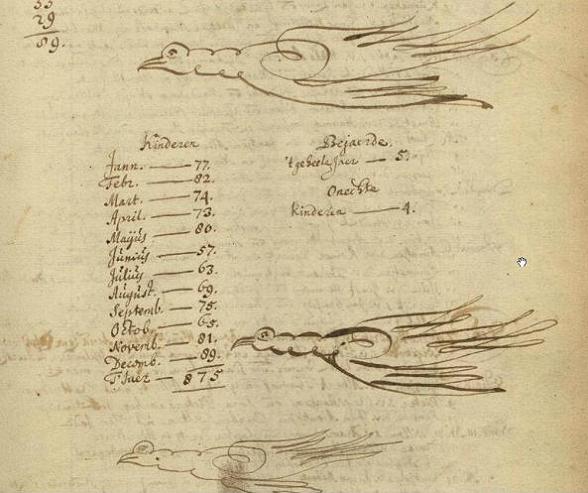 29
89.
Kinderen
Jann. — 77.
Febr. — 82.
Mart. — 74.
April. — 73.
Mayus — 80.
Junius — 57.
Julius — 63.
August. — 69.
Septemb. — 75.
Octob. — 65.
Novemb. — 81.
Decemb. — 89.
T'Jaer — 875
Bejaerde.
't geheele Jaer — 5.
Onechte
kinderen — 4.